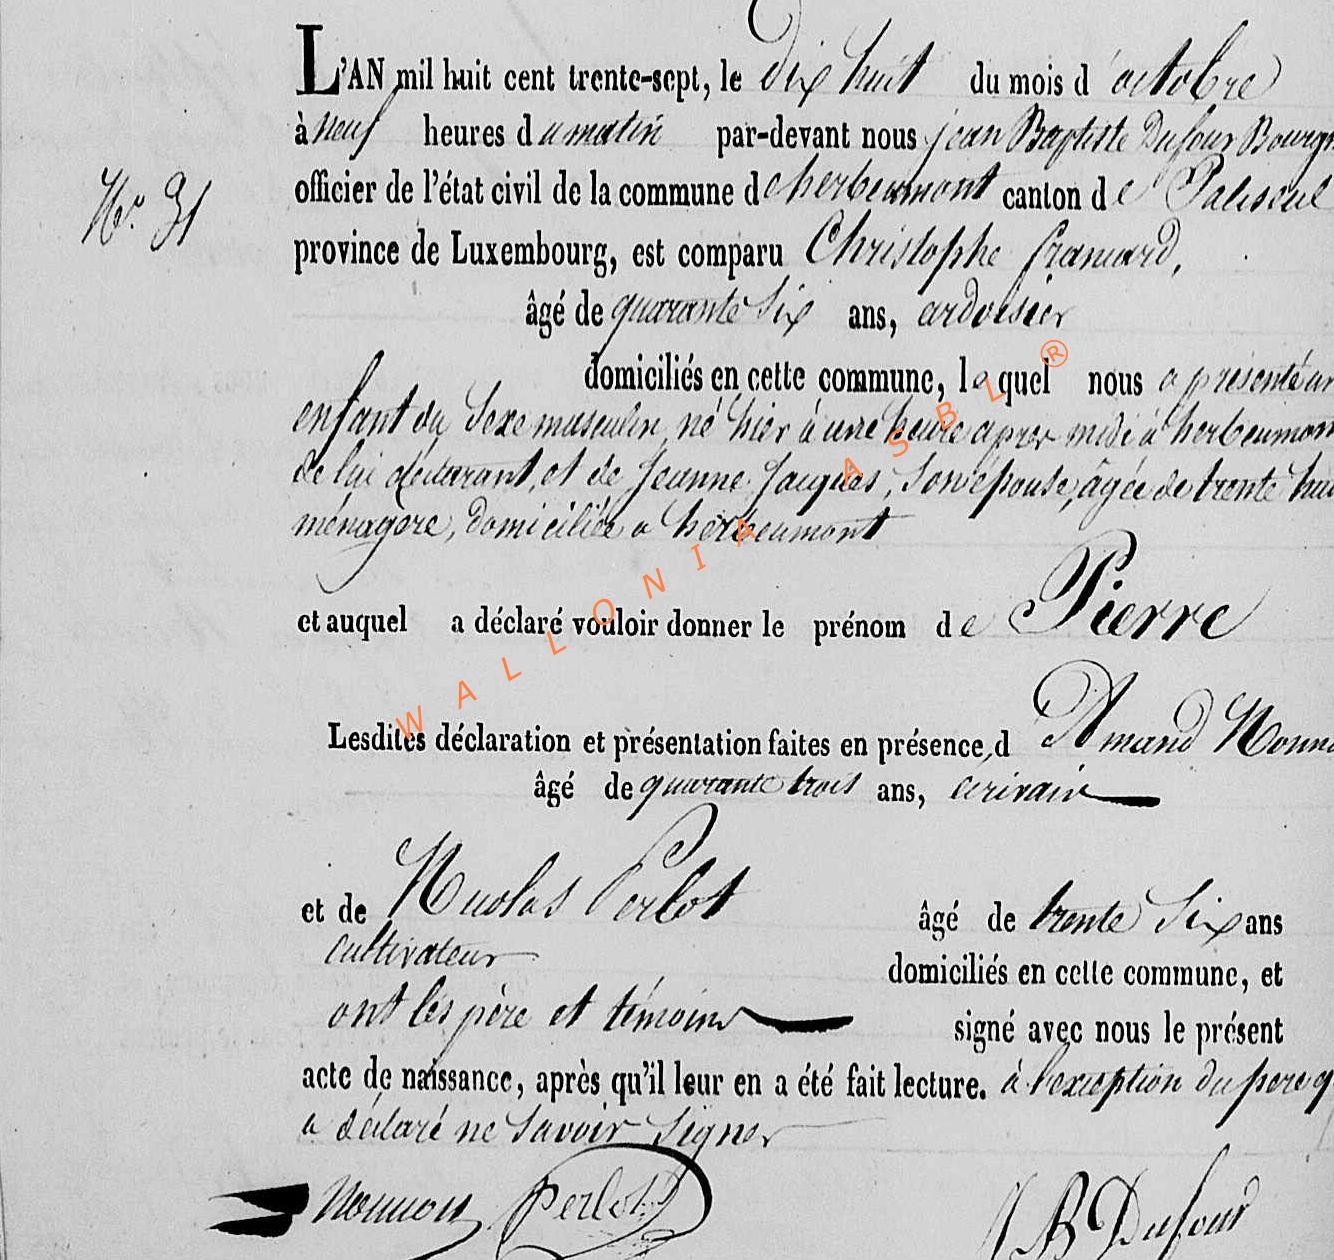 L'AN mil huit cent trente-sept, le Dix huit du mois d'octobre
à neuf heures du matin par-devant nous jean Baptiste Dufour Bourgm
officier de l'état civil de la commune d'herbeumont canton de Paliseul
N° 31
province de Luxembourg, est comparu Christophe
âgé de quarante six ans, ardoisier
domiciliés en cette commune, lequel nous a présenté un
enfant du Sexe masculin, né hier à une heure après midi à herbeumont
de lui déclarant, et de Jeanne Jacques, Son épouse, âgée de trente huit
ménagère, domiciliée a herbeumont
et auquel a déclaré vouloir donner le prénom de Pierre
Lesdites déclaration et présentation faites en présence, d Amand
âgé de quarante trois ans, écrivain
et de Nicolas Perlot âgé de trente Six ans
cultivateur
domiciliés en cette commune, et
ont les père et témoins signé avec nous le présent
acte de naissance, après qu'il leur en a été fait lecture. à l'exception du pere q
a déclaré ne Savoir Signer
Perlot JB Dufour
WALLONIA ASBL ®